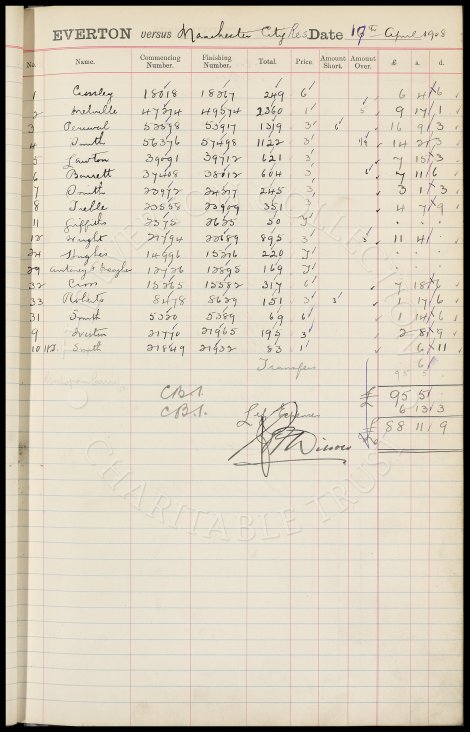 EVERTON versus Manchester City Res Date 17th April 1908
No. Name. Commencing Number. Finishing Number. Total. Price. Amount Short. Amount Over. £ s. d.
1 Crosley 18018 18267 249 6 6 4 6
2 Melville 1 9 17 1
3 Percival 53917 1319 3 6 16 9 3
4 Smith 56376 57498 1122 3 14 2 3
5 Lawton 39091 39712 621 3 7 15 3
6 Barrett 37408 38012 604 3 7 11 6
7 Smith 245 3 3 1 3
8 Treble 23558 23909 351 3 4 7 9
11 Griffiths 2575 2625 50 T
12 Wright 21794 22689 895 3 3 11 4
24 Hughes 14996 15216 220 T
29 12726 12895 169 T
32 Cross 15265 15582 317 6 7 18 6
33 Roberts 8478 8629 151 3 3 1 17 6
31 Smith 5320 5389 69 6 1 14 6
9 Iverton 21770 21965 195 3 2 8 9
10 H.T. Smith 21849 21932 83 1 6 11
Transfers 6
95 5
C.B.S. £ 95 5
C.B.S. Less Expenses 6 13 3
£ 88 11 9
EVERTON COLLECTION
CHARITABLE TRUST